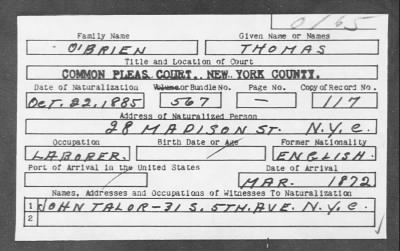 0165
Family Name Given Name or Names
O'BRIEN THOMAS
Title and Location of Court
COMMON PLEAS COURT, NEW YORK COUNTY.
Date of Naturalization Volume or Bundle No. Page No. Copy of Record No.
OCT. 22. 1885 567 — 117
Address of Naturalized Person
28 MADISON ST. N.Y.C.
Occupation Birth Date or Age Former Nationality
LABORER. ENGLISH.
Port of Arrival in the United States Date of Arrival
MAR. 1872
Names, Addresses and Occupations of Witnesses To Naturalization
1 JOHN TALOR-31 S. 5TH. AVE. N.Y.C.
2